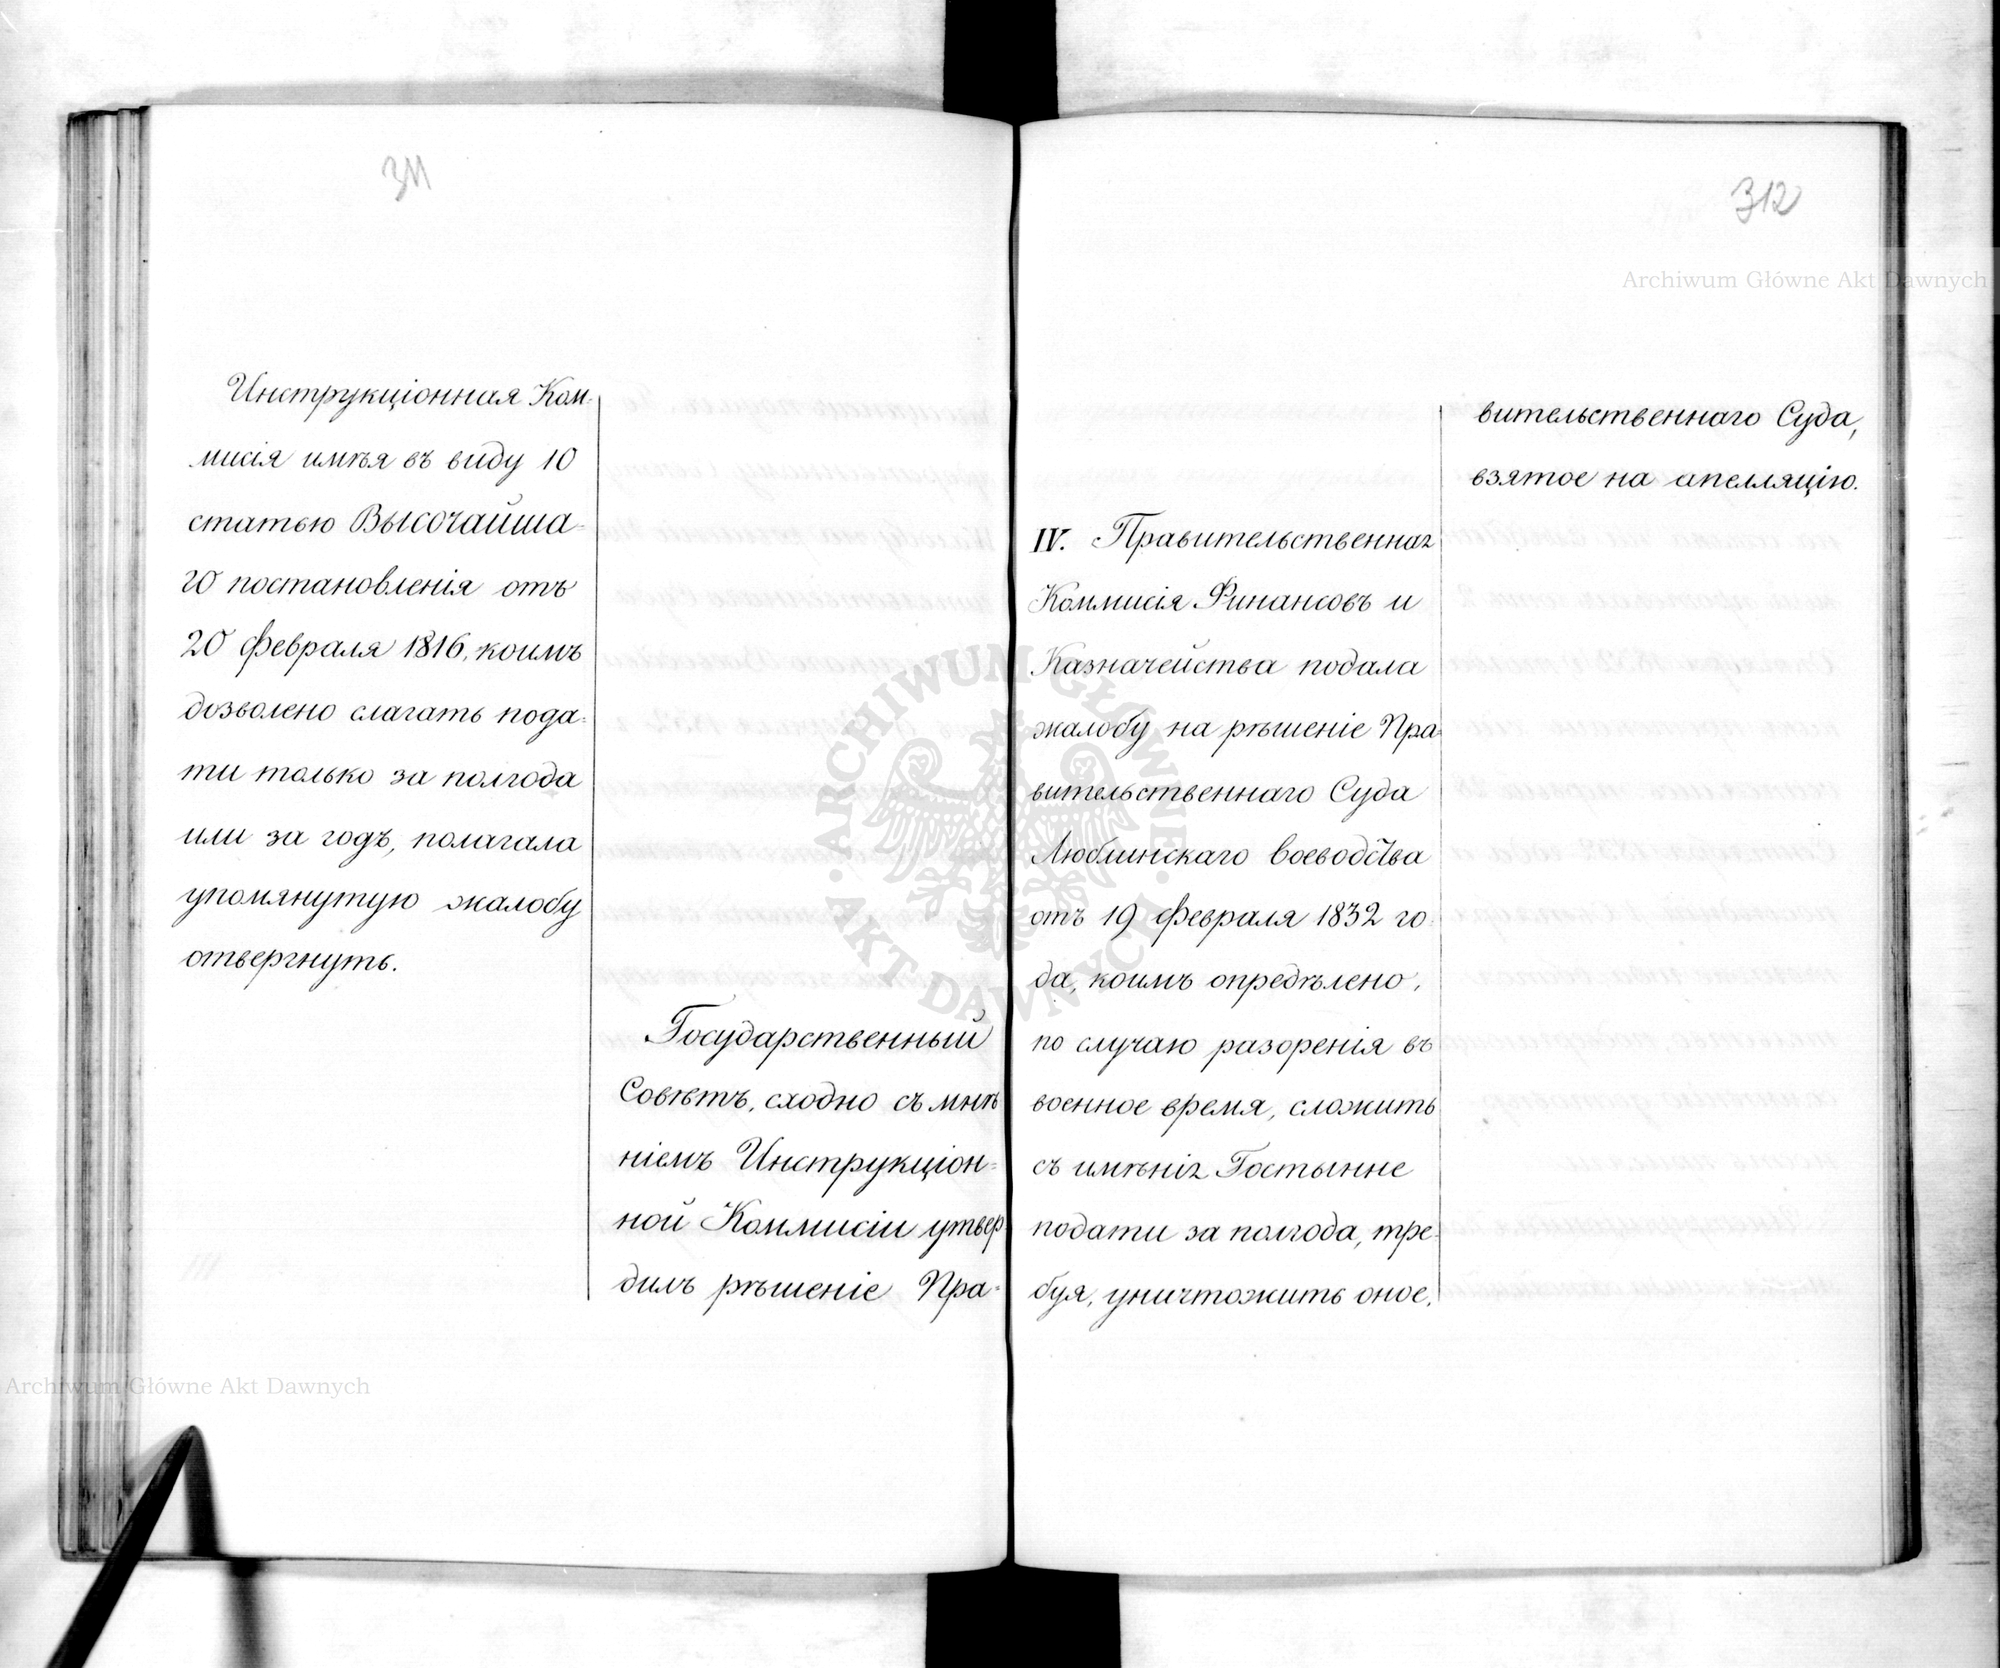 311
Инструкціонная Ком-
мисія имѣя въ виду 10
статью Высочайша-
го постановленія отъ
20 Февраля 1816, коимъ
дозволено слагать пода-
ти только за полгода
или за годъ, полагала
упомянутую жалобу
отвергнуть.
Государственный
Совѣтъ, сходно съ мнѣ
ніемъ Инструкціон-
ной Коммисіи утвер
дилъ рѣшеніе Пра-
312
вительственнаго Суда,
взятое на апелляцію.
IV. Правительственная
Коммисія Финансовъ и
Казначейства подала
жалобу на рѣшеніе Пра-
вительственнаго Суда
Люблинскаго Воеводства
отъ 19 Февраля 1832 го-
да, коимъ опредѣлено,
по случаю разоренія въ
военное время, сложить
съ имѣнія Гостынне
подати за полгода, тре-
буя, уничтожить оное.
Archiwum Główne Akt Dawnych
Archiwum Główne Akt Dawnych
ARCHIWUM GŁÓWNE AKT DAWNYCH